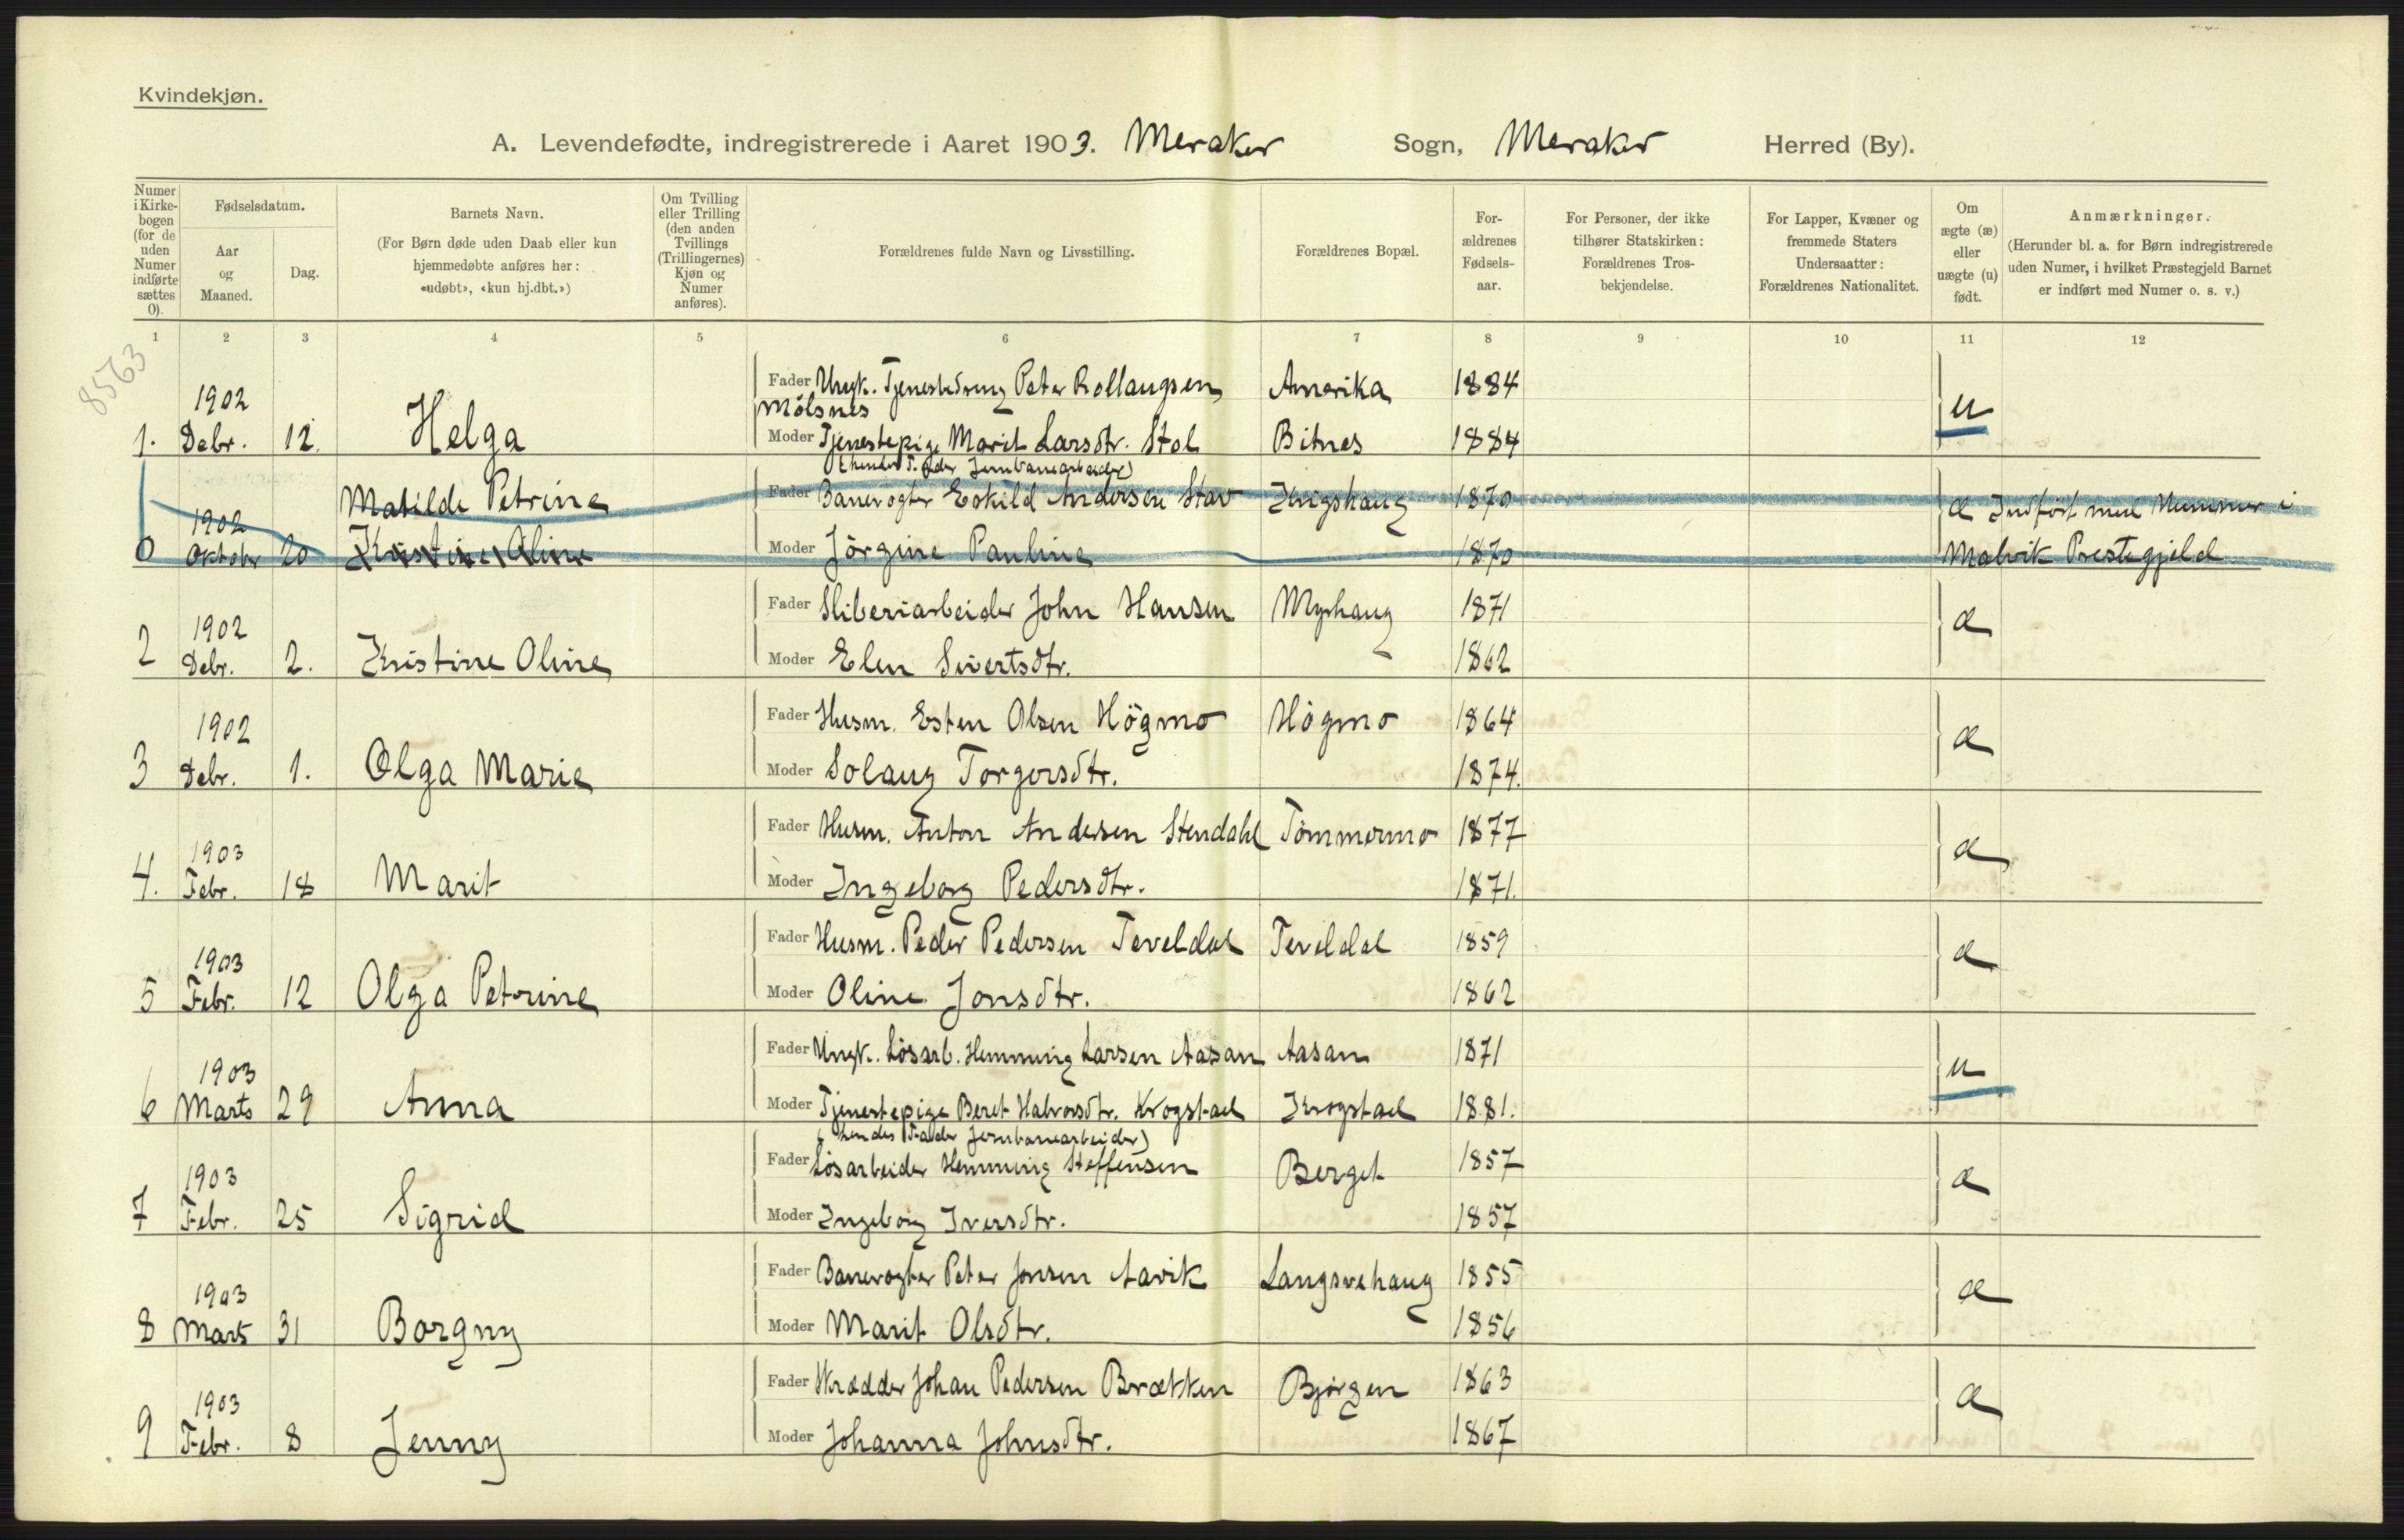 Kvindekjøn.
A. Levendefødte, indregistrerede i Aaret 1903. Meraker Sogn, Meraker Herred (By).
Numer i Kirke-bogen (for de uden Numer indførte sættes 0).
Fødselsdatum.
Aar og Maaned.
Dag.
Barnets Navn.
(For Børn døde uden Daab eller kun hjemmedøbte anføres her: «udøbt», «kun hj.dbt.»)
Om Tvilling eller Trilling (den anden Tvillings (Trillingernes) Kjøn og Numer anføres).
Forældrenes fulde Navn og Livsstilling.
Forældrenes Bopæl.
For-ældrenes Fødsels-aar.
For Personer, der ikke tilhører Statskirken: Forældrenes Tros-bekjendelse.
For Lapper, Kvæner og fremmede Staters Undersaatter: Forældrenes Nationalitet.
Om ægte (æ) eller uægte (u) født.
Anmærkninger.
(Herunder bl. a. for Børn indregistrerede uden Numer, i hvilket Præstegjeld Barnet er indført med Numer o. s. v.)
1 2 3 4 5 6 7 8 9 10 11 12
8563
Fader Ungk. Tjenestedreng Peter Rollaugsen Amerika 1884
Mölsnes
1902 u
1. Debr. 12. Helga Moder Tjenestepige Marit Larsdtr. Stol Bitnes 1884
(hendes Fader Jernbanearbeider)
Matilde Petrine Fader Banevogter Eskild Andersen Stav Krigshaug 1870 æ Indført med Nummer i
1902
0 Oktober 20 Kristine Oline Moder Jörgine Pauline 1870 Malvik Prestegjeld.
Fader Sliberiarbeider John Hansen Myrhaug 1871
1902 æ
2 Debr. 2. Kristine Oline Moder Elen Sivertsdtr. 1862
Fader Husm. Esten Olsen Högmo Högmo 1864
1902 æ
3 Debr. 1. Olga Marie Moder Solaug Torgersdtr. 1874.
Fader Husm. Anton Andersen Stendahl Tömmermo 1877
1903 æ
4. Febr. 18 Marit Moder Ingeborg Pedersdtr. 1871.
Fader Husm. Peder Pedersen Teveldal Teveldal 1859
1903 æ
5 Febr. 12 Olga Petrine Moder Oline Jonsdtr. 1862
Fader Ungk. Lösarb. Hemming Larsen Aasan Aasan 1871
1903 u
6 Marts 29 Anna Moder Tjenestepige Beret Halvorsdtr. Krogstad Krogstad 1881.
(hendes Fader Jernbanearbeider)
Fader Lösarbeider Hemming Steffensen Berget 1857
1903 æ
7 Febr. 25 Sigrid Moder Ingeborg Iversdtr. 1857
Fader Banevogter Peter Jonsen Aavik Langsvehaug 1855
1903 æ
8 Mars 31 Borgny Moder Marit Olsdtr. 1856
Fader Skrædder Johan Pedersen Brætten Björgen 1863
1903 æ
9 Febr. 8 Jenny Moder Johanna Johnsdtr. 1867